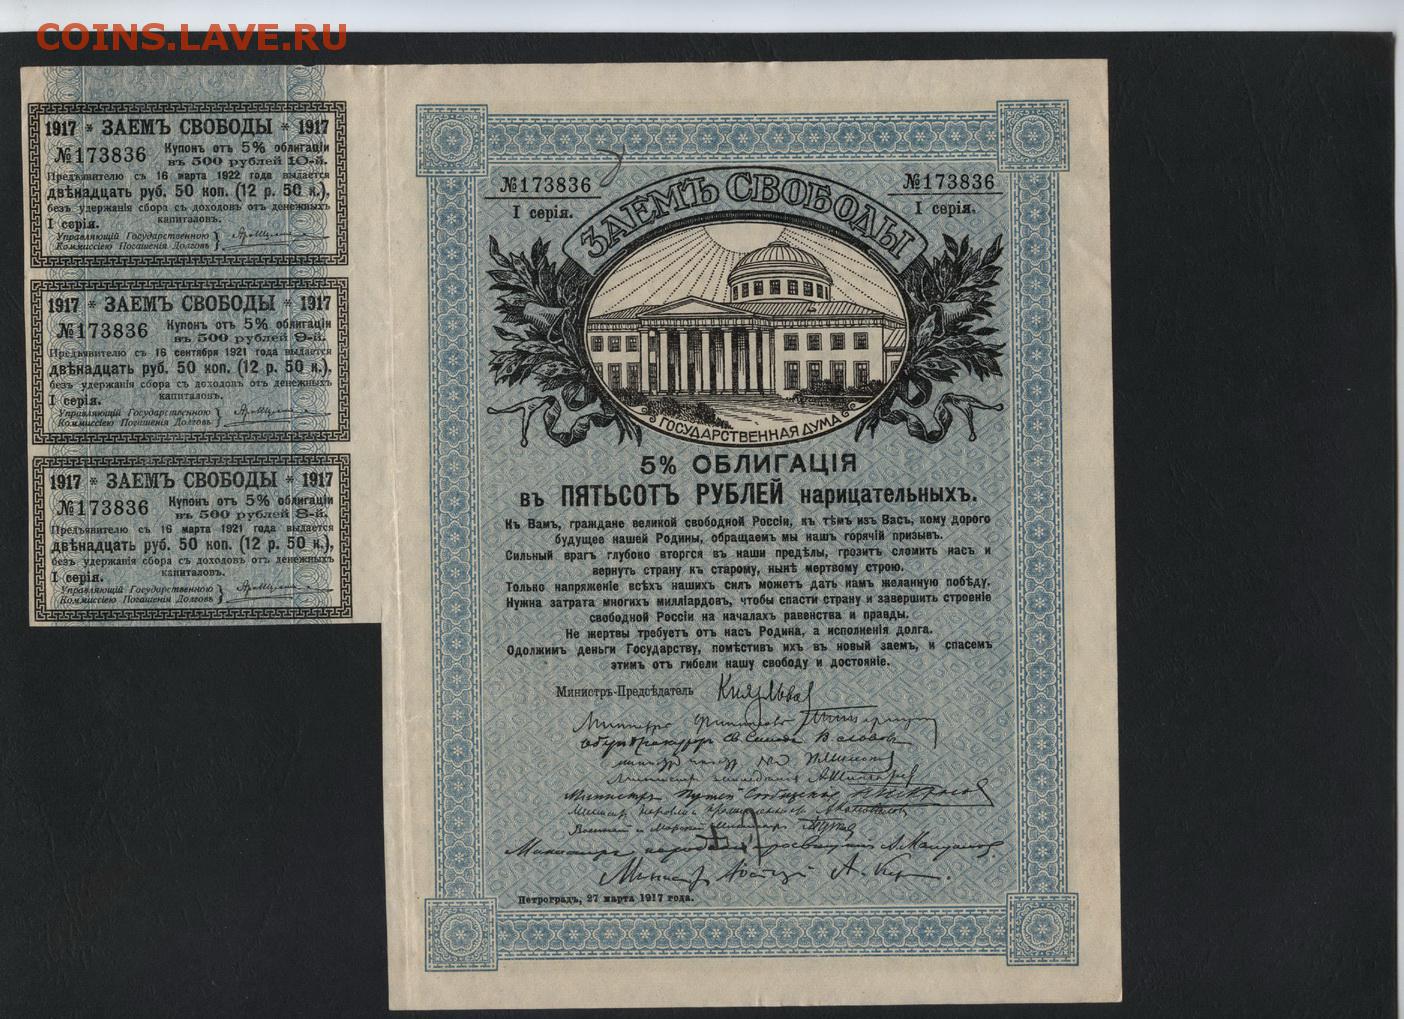 COINS.LAVE.RU
1917 * ЗАЕМЪ СВОБОДЫ * 1917
№173836 Купонъ отъ 5% облигаціи
въ 500 рублей 10-й.
Предъявителю съ 16 марта 1922 года выдается
двѣнадцать руб. 50 коп. (12 р. 50 к.),
безъ удержанія сбора съ доходовъ отъ денежныхъ
I серія. капиталовъ.
Управляющій Государственною
Коммиссіею Погашенія Долговъ
1917 * ЗАЕМЪ СВОБОДЫ * 1917
№173836 Купонъ отъ 5% облигаціи
въ 500 рублей 9-й.
Предъявителю съ 16 сентября 1921 года выдается
двѣнадцать руб. 50 коп. (12 р. 50 к.),
безъ удержанія сбора съ доходовъ отъ денежныхъ
I серія. капиталовъ.
Управляющій Государственною
Коммиссіею Погашенія Долговъ
1917 * ЗАЕМЪ СВОБОДЫ * 1917
№173836 Купонъ отъ 5% облигаціи
въ 500 рублей 8-й.
Предъявителю съ 16 марта 1921 года выдается
двѣнадцать руб. 50 коп. (12 р. 50 к.),
безъ удержанія сбора съ доходовъ отъ денежныхъ
I серія. капиталовъ.
Управляющій Государственною
Коммиссіею Погашенія Долговъ
№173836 №173836
I серія. I серія.
ЗАЕМЪ СВОБОДЫ
ГОСУДАРСТВЕННАЯ ДУМА
5% ОБЛИГАЦІЯ
въ ПЯТЬСОТЪ РУБЛЕЙ нарицательныхъ.
Къ Вамъ, граждане великой свободной Россіи, къ тѣмъ изъ Васъ, кому дорого
будущее нашей Родины, обращаемъ мы нашъ горячій призывъ.
Сильный врагъ глубоко вторгся въ наши предѣлы, грозитъ сломить насъ и
вернуть страну къ старому, нынѣ мертвому строю.
Только напряженіе всѣхъ нашихъ силъ можетъ дать намъ желанную побѣду.
Нужна затрата многихъ милліардовъ, чтобы спасти страну и завершить строеніе
свободной Россіи на началахъ равенства и правды.
Не жертвы требуетъ отъ насъ Родина, а исполненія долга.
Одолжимъ деньги Государству, помѣстивъ ихъ въ новый заемъ, и спасемъ
этимъ отъ гибели нашу свободу и достояніе.
Министръ-Предсѣдатель Князь Львов
Министръ Финансовъ
Оберъ Прокуроръ Св. Синода В. Львов
Министръ земледѣлія А. Шингарев
Министръ Путей Сообщенія Н. Некрасов
Министр Торговли и Промышленности А. Коновалов
Военный и Морской Министръ
Министръ народнаго просвѣщенія А. Мануйлов
Министръ Юстиціи А. Кер
Петроградъ, 27 марта 1917 года.